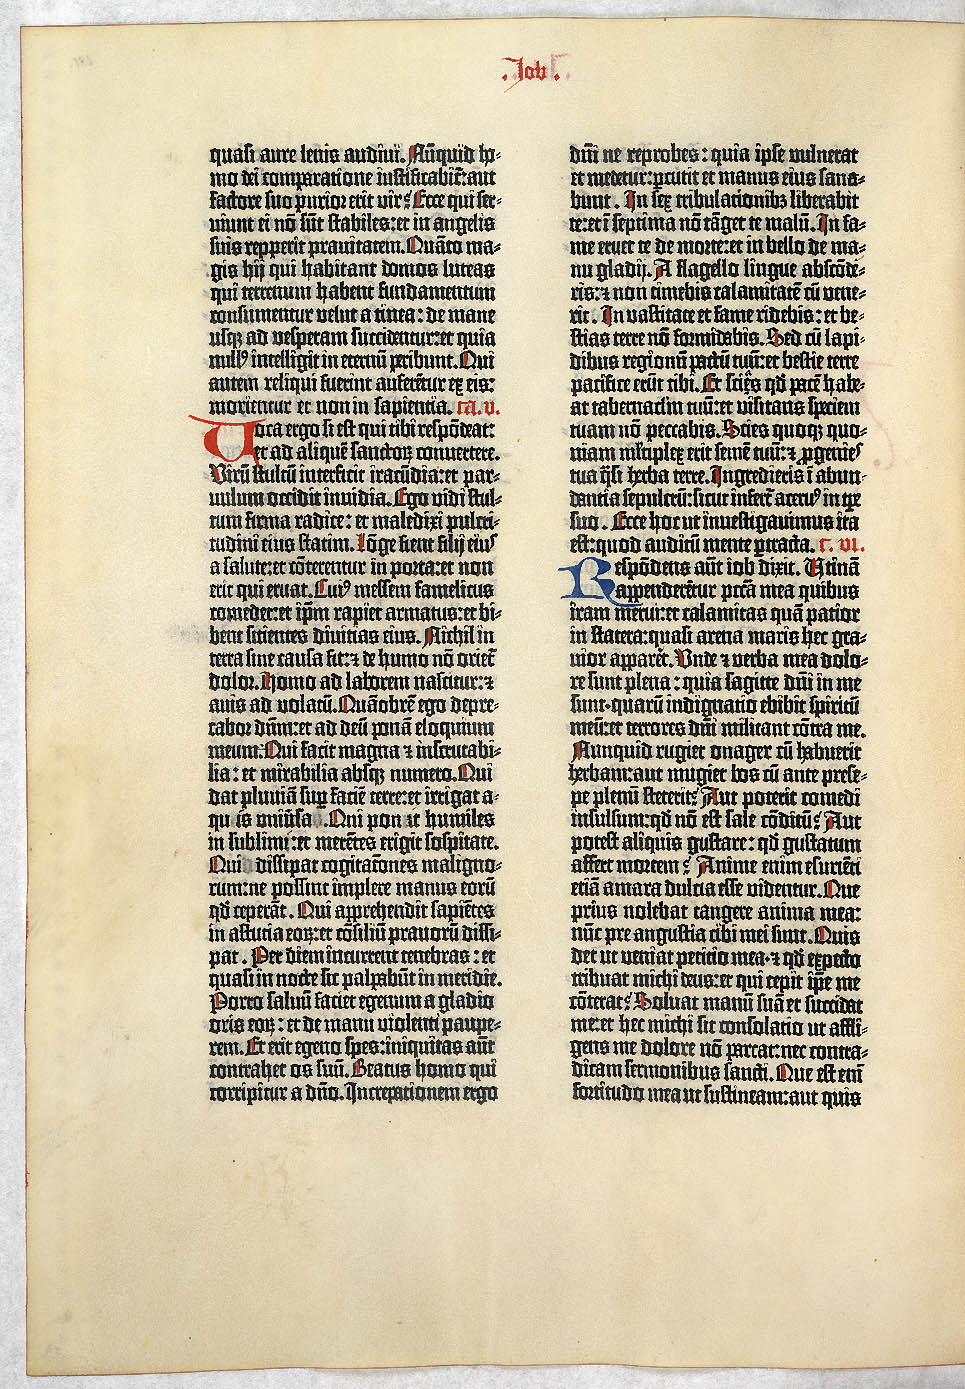 .Iob.
quasi aure lenis audiui. Nūquid ho-
mo dei cōparatione iustificabit̄: aut
factore suo purior erit vir? Ecce qui ser-
uiunt ei nō sūt stabiles: et in angelis
suis repperit prauitatem. Quāto ma-
gis hij qui habitant domos luteas
qui terrenum habent fundamentum
consumentur velut a tinea: de mane
usq; ad vesperam succidentur: et quia
nullꝰ intelligit in eternū peribunt. Qui
autem reliqui fuerint auferētur ex eis:
morientur et non in sapientia. ca. v.
Voca ergo si est qui tibi respōdeat:
et ad aliquē sanctoꝝ convertere.
Virū stultū interficit iracūdia: et par-
uulum occidit inuidia. Ego vidi stul-
tum firma radice: et maledixi pulcri-
tudini eius statim. Lōge fient filij eiꝰ
a salute: et cōterentur in porta: et non
erit qui eruat. Cuiꝰ messem famelicus
comedet: et ip̄m rapiet armatus: et bi-
bent sitientes divitias eius. Nichil in
terra sine causa fit: ⁊ de humo nō oriet̄
dolor. Homo ad laborem nascitur: ⁊
auis ad volatū. Quāobrē ego depre-
cabor dn̄m: et ad deū ponā eloquium
meum: Qui facit magna ⁊ inscrutabi-
lia: et mirabilia absq; numero. Qui
dat pluuiā sup̄ faciē terre: et irrigat a-
quis vniūsa. Qui ponit humiles
in sublimi: et merētes erigit sospitate.
Qui dissipat cogitatōnes maligno-
rum: ne possint implere manus eorū
qd̄ ceperāt. Qui apprehendit sapiētes
in astucia eoꝝ: et cōsiliū prauorū dissi-
pat. Per diem incurrent tenebras: et
quasi in nocte sic palpabūt in meridie.
Porro saluū faciet egenum a gladio
oris eoꝝ: et de manu violenti paupe-
rem. Et erit egeno spes: iniquitas aūt
contrahet os suū. Beatus homo qui
corripitur a dn̄o. Increpationem ergo
dn̄i ne reprobes: quia ipse vulnerat
et medetur: ꝑcutit et manus eius sana-
bunt. In sex tribulationibꝫ liberabit
te: et ī septima nō tāget te malū. In fa-
me eruet te de morte: et in bello de ma-
nu gladij. A flagello lingue abscōde-
ris: ⁊ non timebis calamitatē cū vene-
rit. In vastitate et fame ridebis: et be-
stias terre nō formidabis. Sed cū lapi-
dibus regionū pactū tuū: et bestie terre
pacifice erūt tibi. Et scies qd̄ pacē habe-
at tabernaclm tuū: et visitans speciem
tuam nō peccabis. Scies quoqꝫ quo-
niam ml̄tiplex erit semē tuū: ⁊ ꝓgenieˢ
tua q̄si herba terre. Ingredieris ī abun-
dantia sepulcrū: sicut infert̄ aceruꝰ in tꝑe
suo. Ecce hoc ut inuestigauimus ita
est: quod auditū mente ꝑtracta. c. vi.
Respōdens aūt iob dixit. Utinā
appenderētur pctā mea quibus
iram merui: et calamitas quā patior
in statera: quasi arena maris hec gra-
uior apparet̄. Vnde ⁊ verba mea dolo-
re sunt plena: quia sagitte dn̄i in me
sunt. quarū indignatio ebibit spiritū
meū: et terrores dn̄i militant cōtra me.
Nunquid rugiet onager cū habuerit
herbam: aut mugiet bos cū ante prese-
pe plenū steterit? Aut poterit comedi
insulsum: qd̄ nō est sale cōditū? Aut
potest aliquis gustare: qd̄ gustatum
affert mortem? Anime enim esuriēti
etiā amara dulcia esse videntur. Que
prius nolebat tangere anima mea:
nūc pre angustia cibi mei sunt. Quis
det ut veniat petitio mea. ⁊ qd̄ expecto
tribuat michi deus: et qui cepit ip̄e me
cōterat? Soluat manū suā et succidat
me: et hec michi sit consolatio ut affli-
gens me dolore nō parcat: nec contra-
dicam sermonibus sancti. Que est enī
fortitudo mea ut sustineam: aut quis